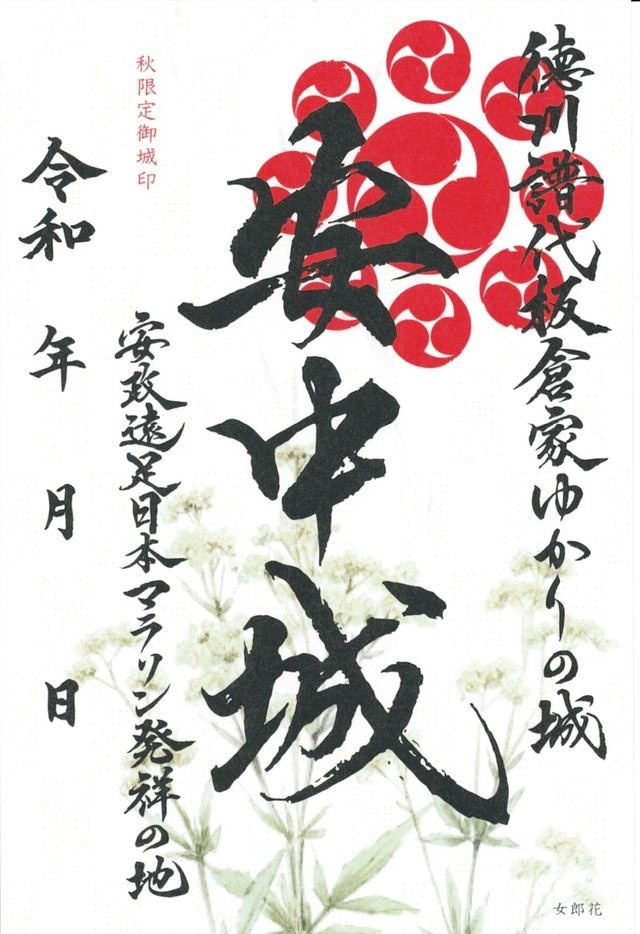 徳川譜代板倉家ゆかりの城
安中城
秋限定御城印
安政遠足日本マラソン発祥の地
令和 年 月 日
女郎花